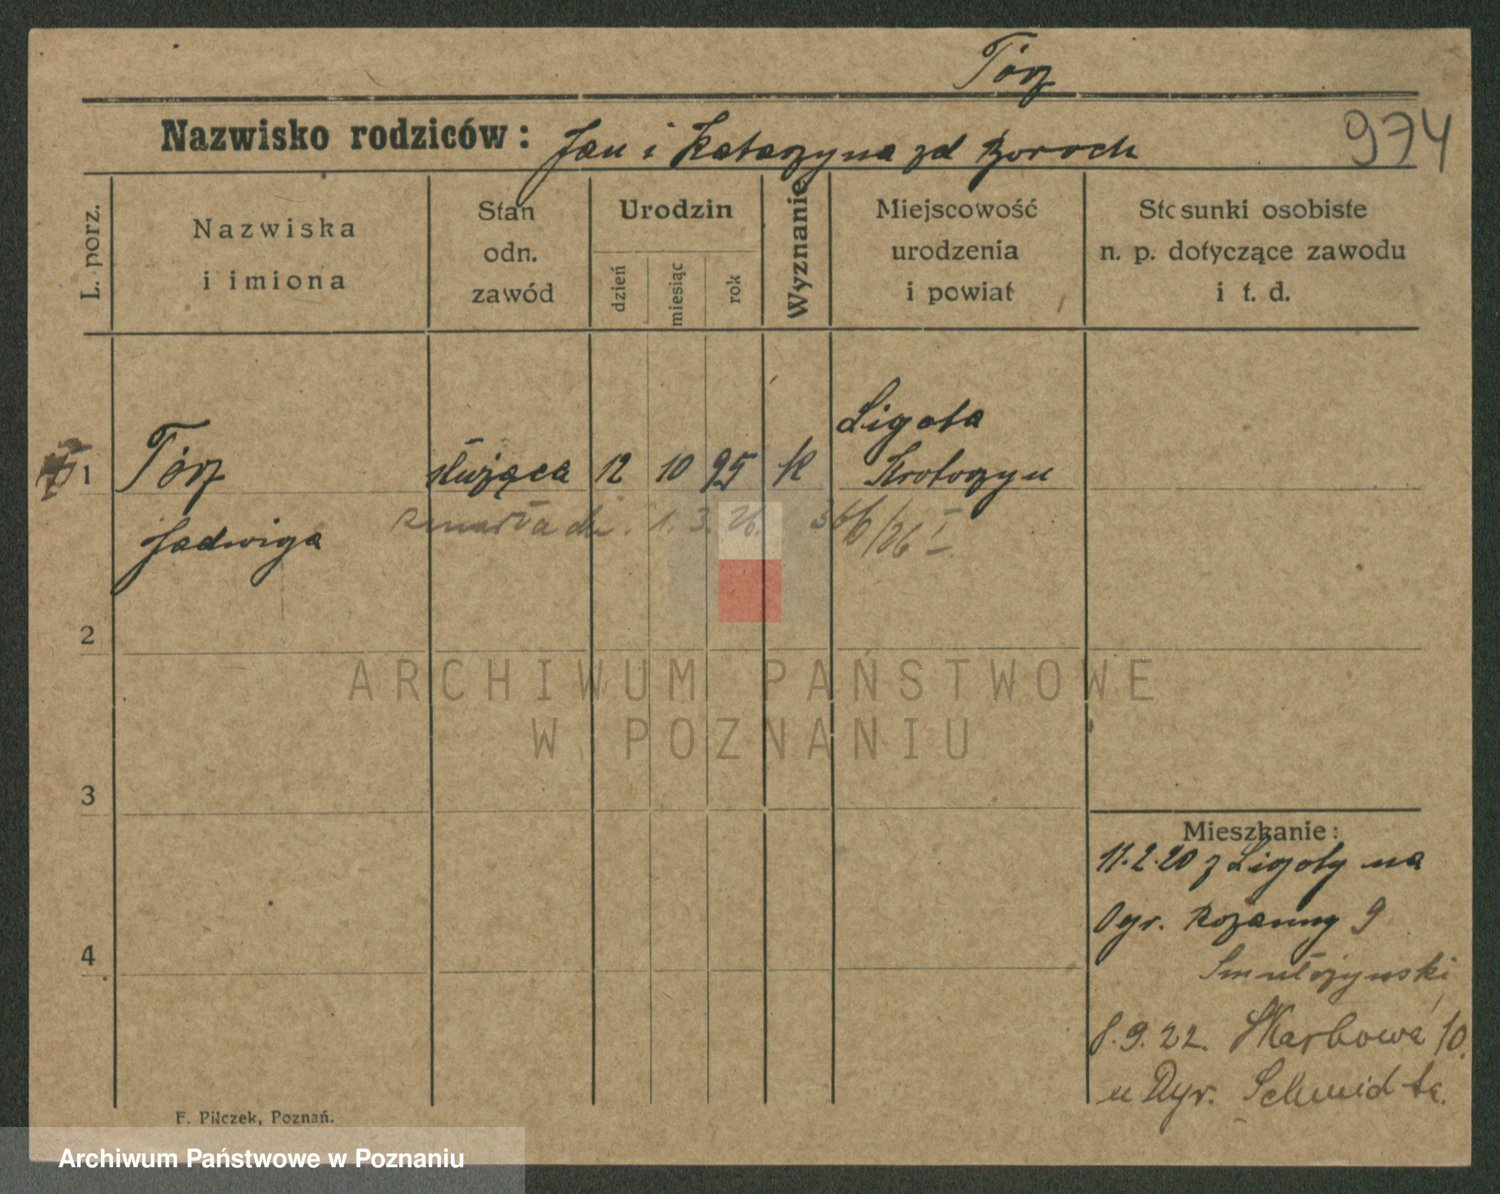 Tórz
Nazwisko rodziców: Jan i Katarzyna zd
974
L. porz.
Nazwiska
i imiona
Stan
odn.
zawód
Urodzin
dzień
miesiąc
rok
Wyznanie
Miejscowość
urodzenia
i powiat
Stosunki osobiste
n. p. dotyczące zawodu
i t. d.
1 Tórz służąca 12 10 95 K Ligota
Krotoszyn
Jadwiga
zmarła dn. 1. 3. 26. 366/26 I.
2
3
4
ARCHIWUM PAŃSTWOWE
W POZNANIU
Mieszkanie:
11.2.20 z Ligoty na
Ogr. 9
8.9.22. Skarbowa 10.
u Dyr. Schmidta.
F. Pilczek, Poznań.
Archiwum Państwowe w Poznaniu